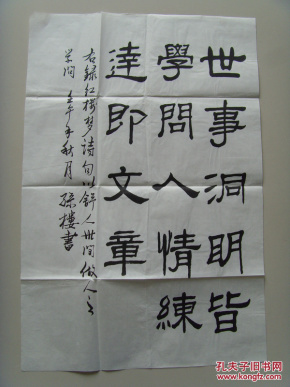 世事洞明皆
學問人情練
達即文章
右録紅樓夢詩句以觧人世间做人之
学问 壬午年秋月 孫樓書
孔夫子旧书网